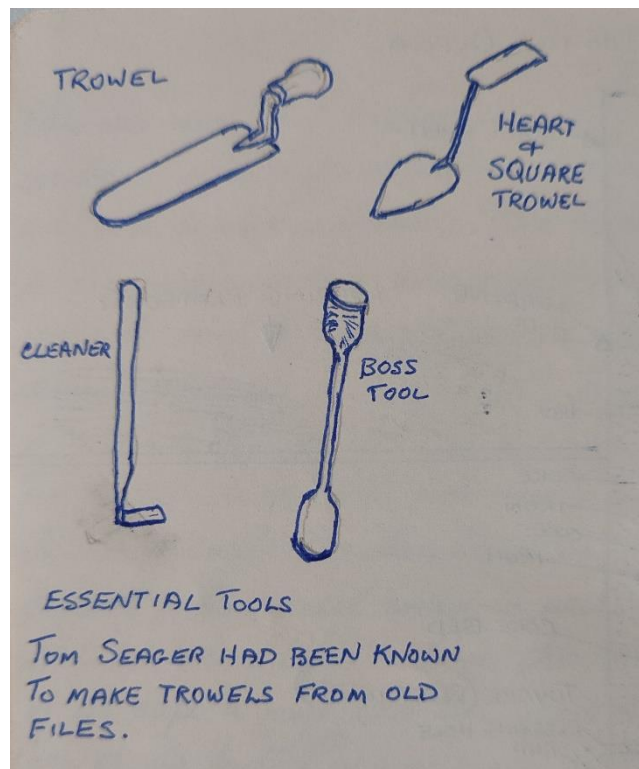 TROWEL
HEART
&
SQUARE
TROWEL
CLEANER
BOSS
TOOL
ESSENTIAL TOOLS
TOM SEAGER HAD BEEN KNOWN
TO MAKE TROWELS FROM OLD
FILES.